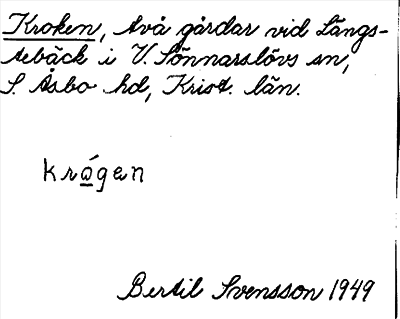 Kroken, två gårdar vid Längs-
tebäck i V. Sönnarslövs sn,
S. Åsbo hd, Krist. län.
krǻ̱gen
Bertil Svensson 1949